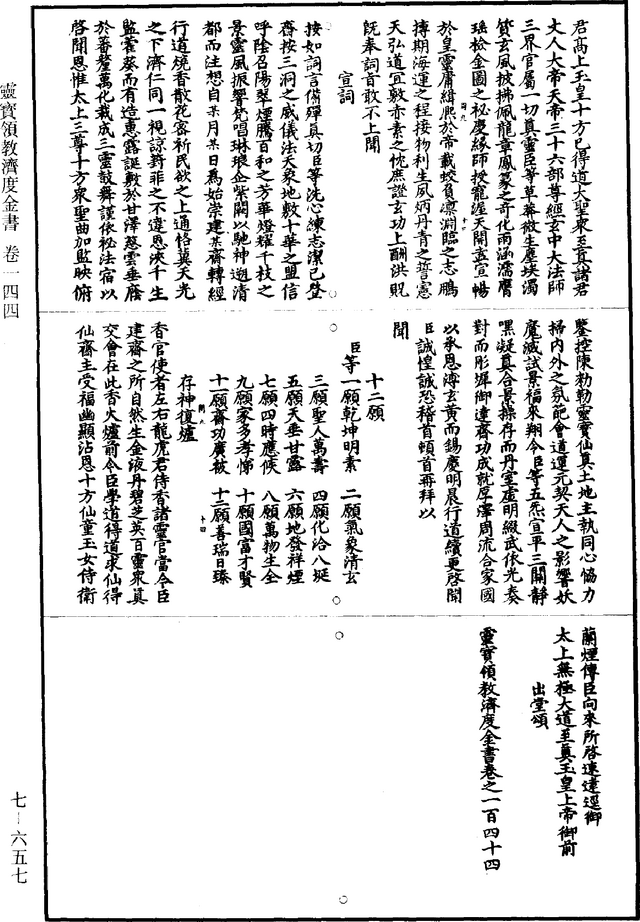 君高上玉皇十方已得道大聖眾至真諸君
丈人大帝天帝三十六部尊經玄中大法師
三界官屬一切真靈臣等草莽微生塵埃濁
質玄風披拂佩龍章鳳篆之奇化雨涵濡膺
瑤檢金圖之秘慶緣師授寵渥天開蓋宣暢
於皇靈庸緝熙於帝載蛟負凛淵臨之志鵬
摶期海運之程接物利生夙炳丹青之誓憲
天弘道宜敷赤素之忱庶證玄功上酬洪貺
既奉詞音敢不上聞
宣詞
按如詞言備殫真切臣等洗心練志潔已登
齋按三洞之威儀法天象地敷十華之盟信
呼陰召陽翠煙騰百和之芳華燈耀千枝之
景靈風振響梵唱琳琅企紫闕以馳神遡清
都而注想自某月某日為始崇建某齋轉經
行道燒香散花客祈民欲之上通格冀天光
之下濟仁同一視諒葑菲之不遺恩浹千生
監藿葵而有造惠露誕敷於甘澤慈雲垂廕
於蕃釐萬化裁成三靈鼓舞謹依秘法宿以
啓聞恩惟太上三尊十方眾聖曲加監映俯
鑒控陳勑勒靈寶仙真土地主執同心恊力
掃內外之氛配會道運元契天人之影響妖
魔滅試景福來翔今臣等五炁宣平三關靜
嘿凝真合景操存而丹室虛明綴武依光奏
對而彤墀御達齋功成就厚澤周流合家國
以承恩溥玄黄而錫慶明晨行道續更啓聞
臣誠惶誠恐稽首頓首再拜以
聞
十二願
臣等一願乾坤明素　二願氣象清玄
三願聖人萬壽　四願化洽八埏
五願天垂甘露　六願地發祥煙
七願四時應候　八願萬物生全
九願家多孝悌　十願國富才賢
十一願齋功廣被　十二願善瑞日臻
存神復爐
香官使者左右龍虎君侍香諸靈官當令臣
建齋之所自然生金液丹碧芝英百靈眾真
交會在此香火爐前令臣學道得道求仙得
仙齋主受福幽顯沾恩十方仙童玉女侍衛
蘭煙傳臣向來所啓速達逕御
太上無極大道至真玉皇上帝御前
出堂頌
靈寶領教濟度金書卷之一百四十四
靈寶領教濟度金書　卷一四四
七－六五七